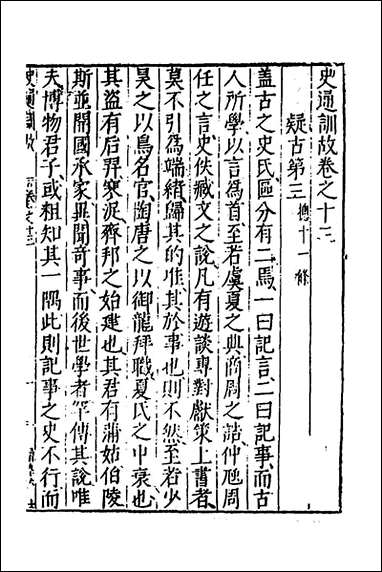 史通訓故卷之十三
疑古第三 總十一條
盖古之史氏區分有二焉一曰記言二曰記事而古
人所學以言為首至若虞夏之典商周之誥仲虺周
任之言史佚臧文之說凡有遊談專對獻策上書者
莫不引為端緒歸其的准其於事也則不然至若少
昊之以鳥名官陶唐之以御龍拜職夏氏之中衰也
其盜有后羿寒浞齊邦之始建也其君有蒲姑伯陵
斯並開國承家異聞奇事而後世學者罕傳其說唯
夫博物君子或粗知其一隅此則記事之史不行而